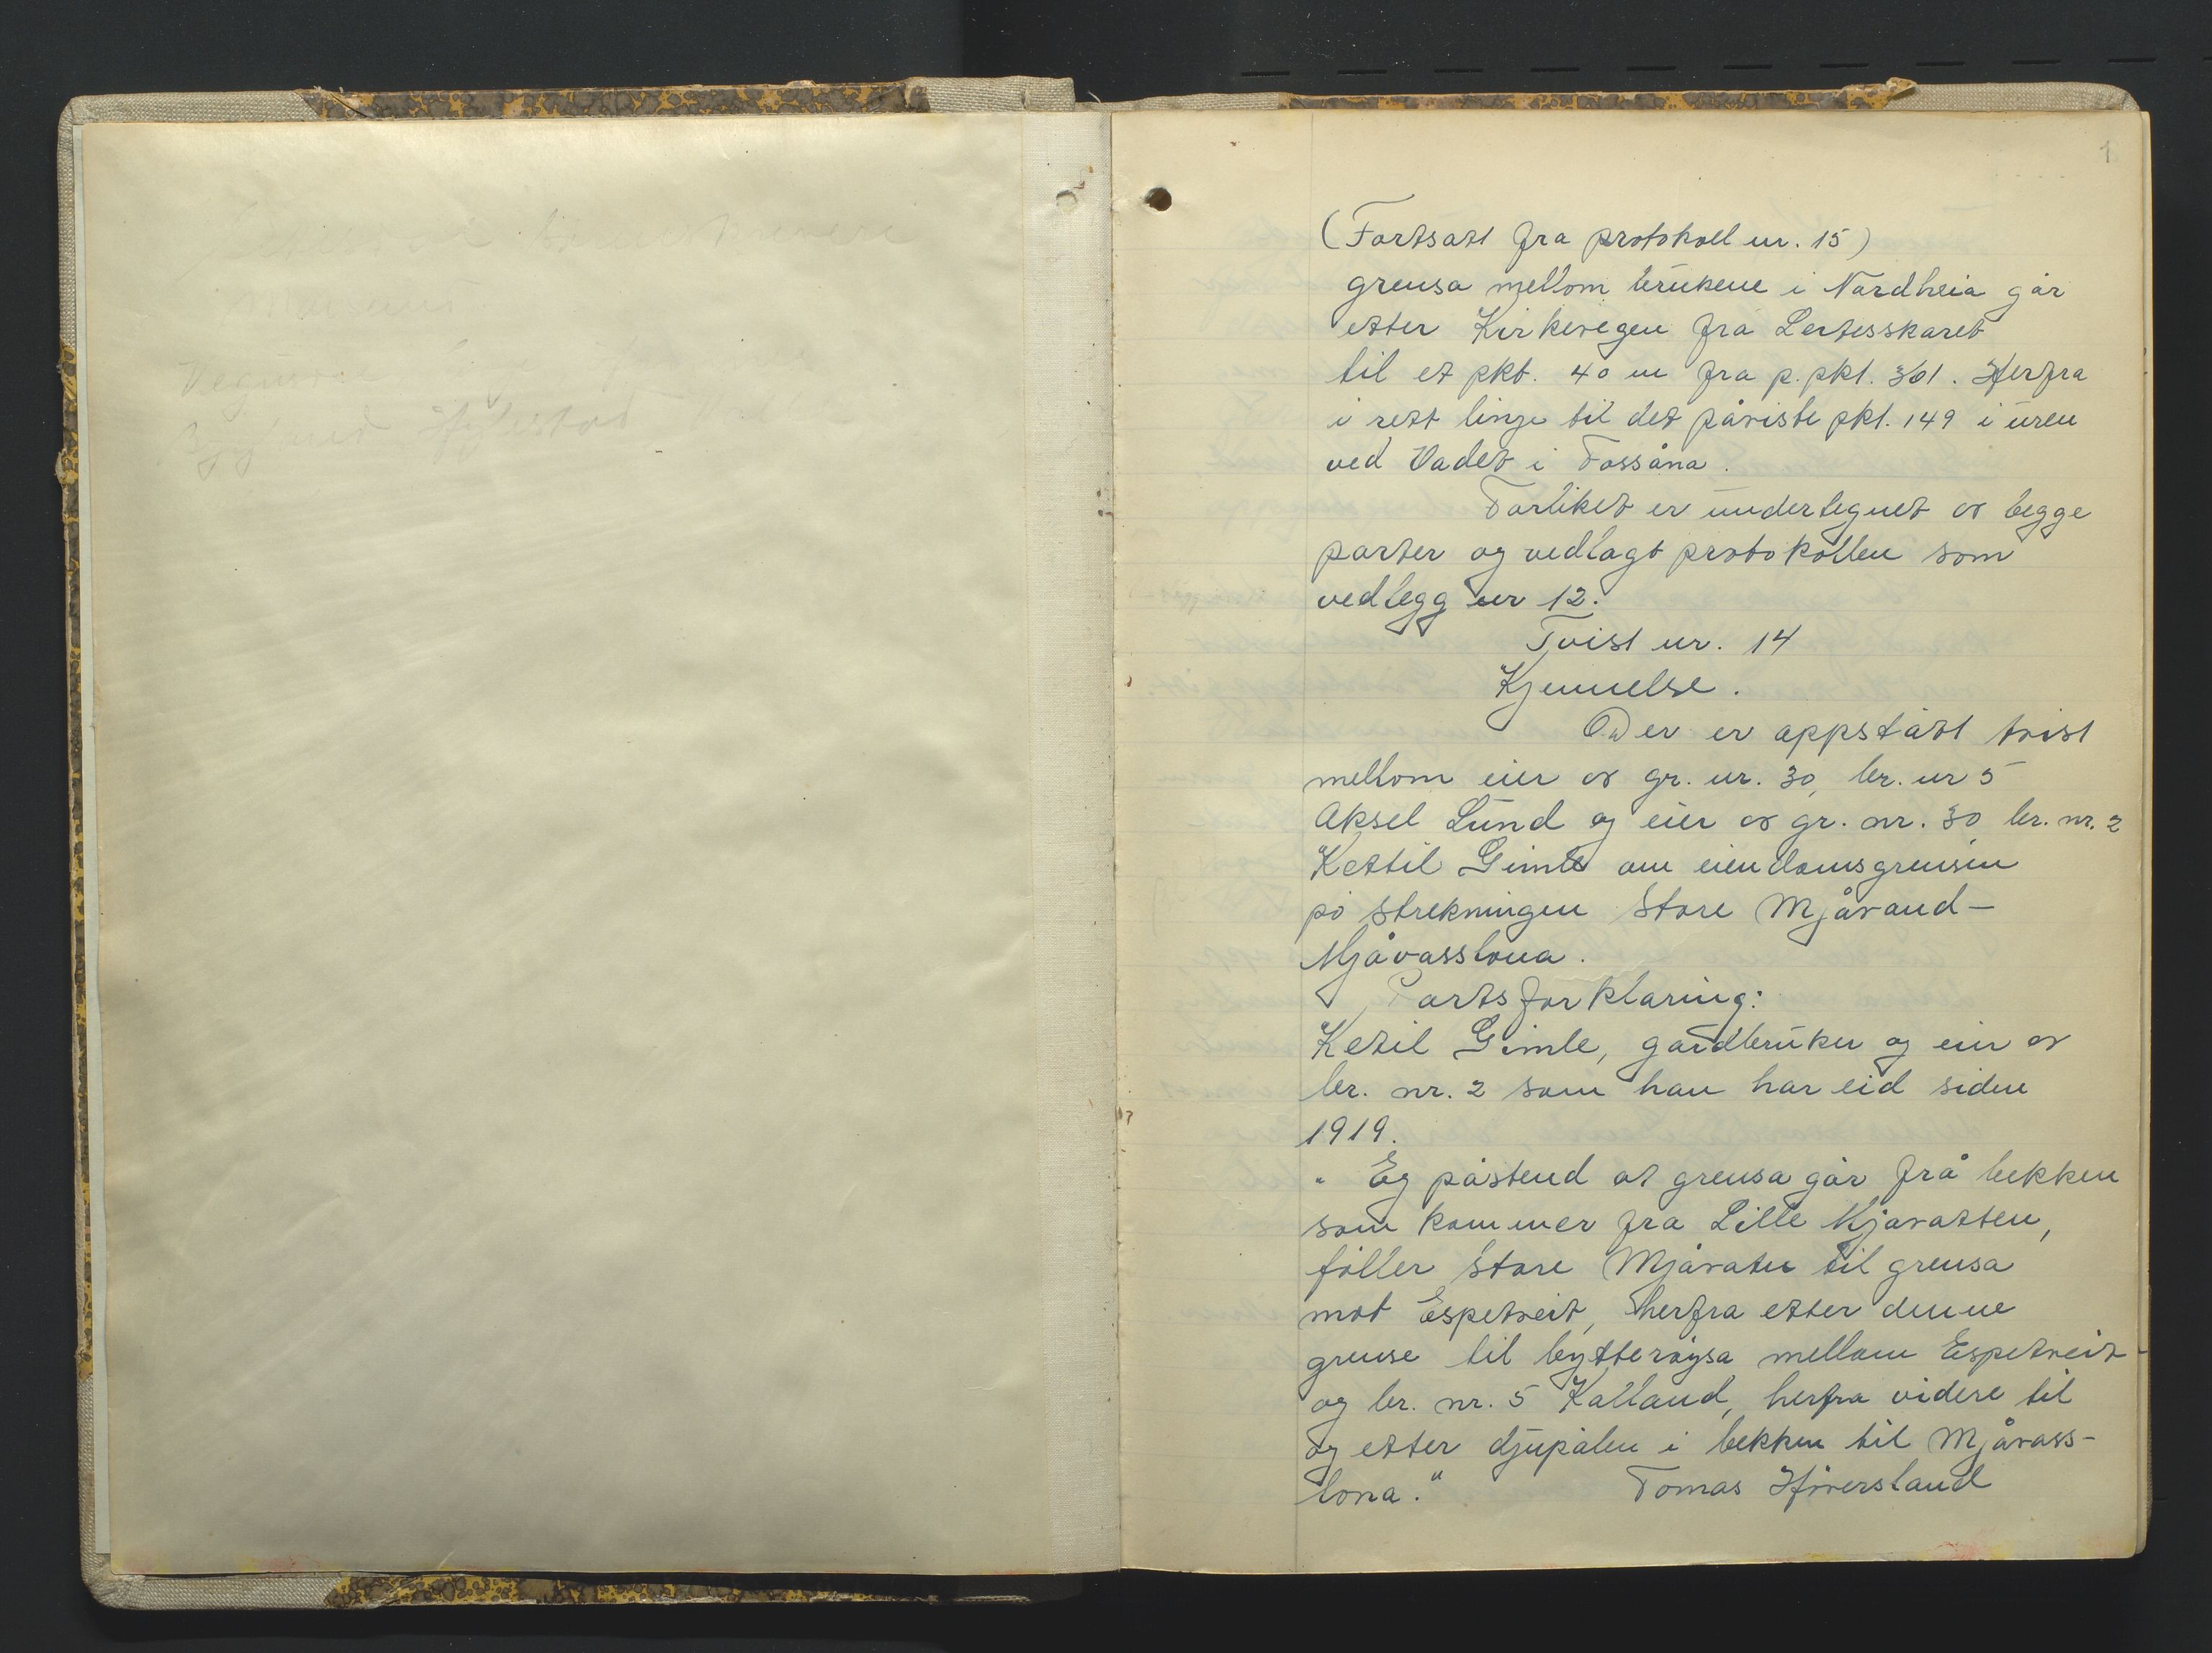 1
(Fortsatt fra protokoll nr. 15)
grensa mellom brukene i Nordheia går
etter Kirkevegen fra Lertesskaret
til et pkt. 40 m fra p.pkt. 361. Herfra
i rett linje til det påviste pkt. 149 i uren
ved Vadet i Fossåna.
Forliket er undertegnet av begge
parter og vedlagt protokollen som
vedlegg nr 12.
Tvist nr. 14
Kjennelse.
Der er oppstått tvist
mellom eier av gr. nr. 30, br. nr 5
Aksel Lund og eier av gr. nr. 30 br. nr. 2
Kettil Gimle om eiendomsgrensen
på strekningen Store Mjåvand-
Mjåvasslona.
Partsforklaring:
Ketil Gimle, gårdbruker og eier av
br. nr. 2 som han har eid siden
1919.
" Eg påstend at grensa går frå bekken
som kommer fra Lille Mjavatten,
föller Store Mjåvatn til grensa
mot Espetveit, herfra etter denne
grense til bytteröysa mellom Espetveit
og br. nr. 5 Kalland, herfra videre til
og etter djupålen i bekken til Mjåvass-
lona." Tomas Höversland